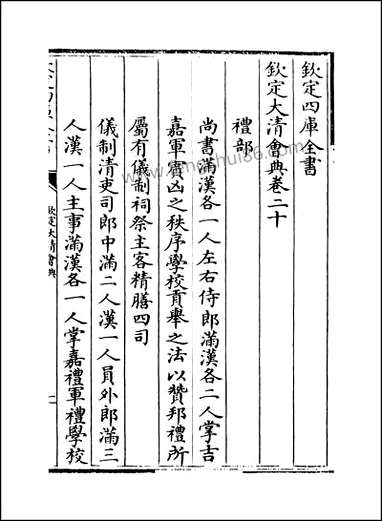 欽定四庫全書
欽定大清會典卷二十
禮部
尚書滿漢各一人左右侍郎滿漢各二人掌吉
嘉軍賓凶之秩序學校貢舉之法以贊邦禮所
屬有儀制祠祭主客精膳四司
儀制清吏司郎中滿二人漢一人員外郎滿三
人漢一人主事滿漢各一人掌嘉禮軍禮學校
欽定大清會典